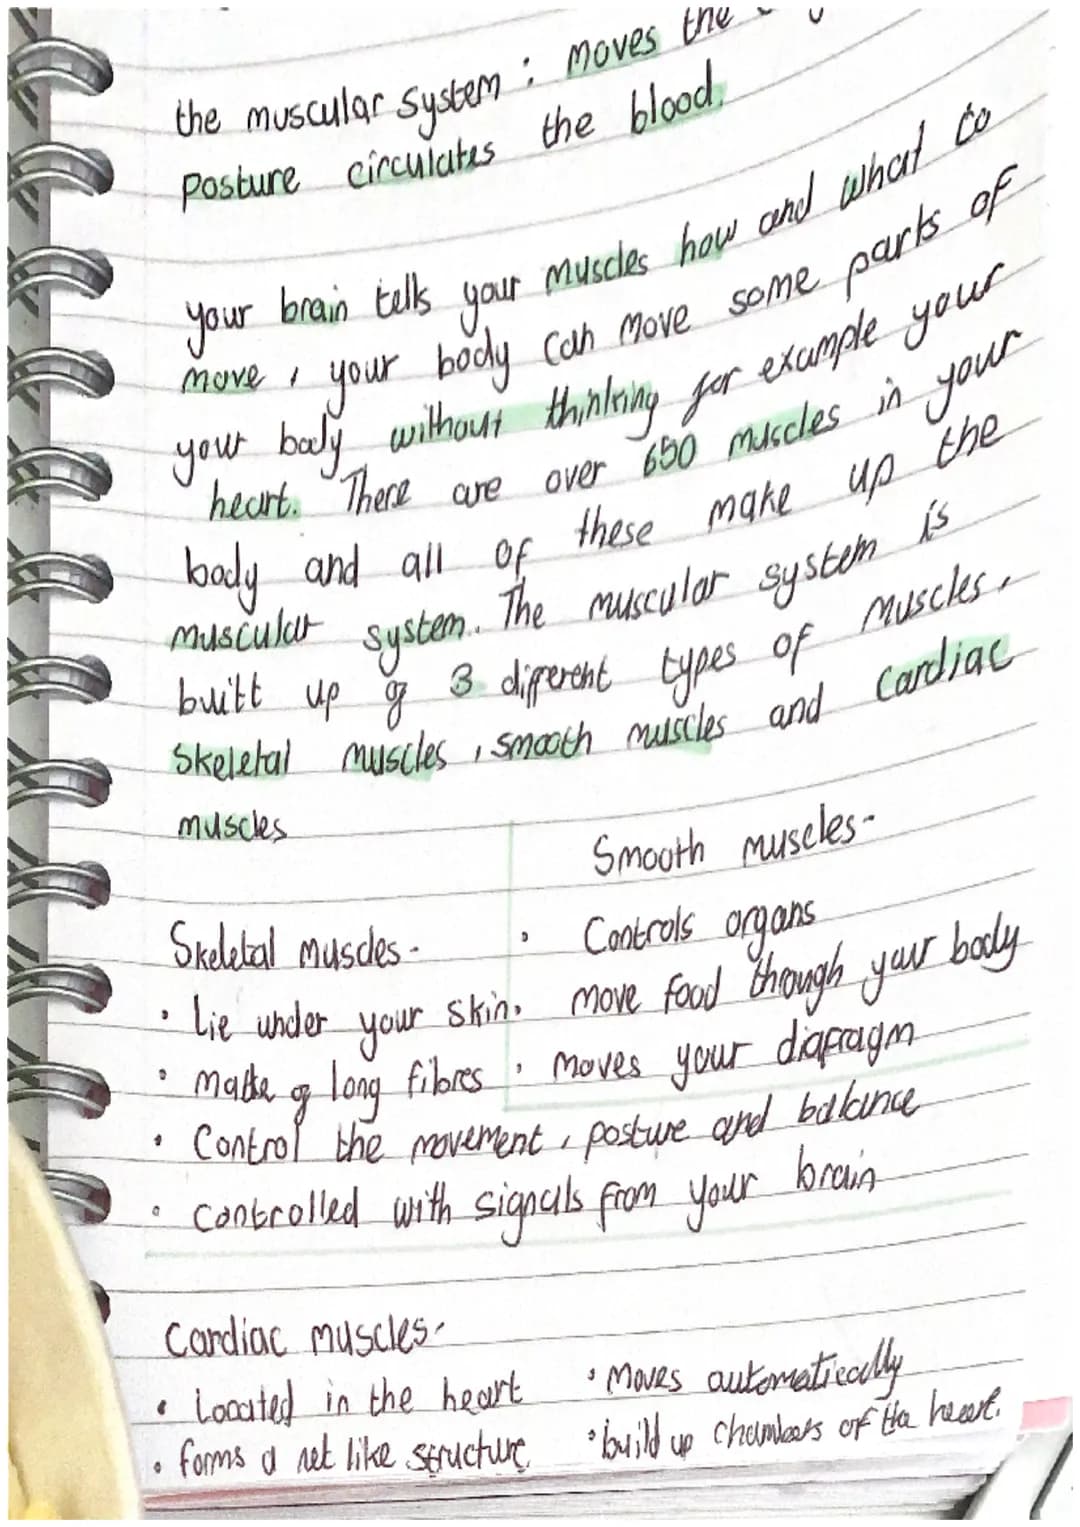 the muscular system : moves the
Posture circulates the blood.
your brain tells your muscles how and what to
move , your body can move some parts of
your body without thinking for example your
heart. There are over 650 muscles in your
body and all of these make up the
muscular system. The muscular system is
built up of 3 different types of muscles.
Skeletal muscles , smooth muscles and cardiac
muscles
Smooth muscles-
• Controls organs
• move food through your body
• moves your diafragm
Skeletal muscles -
• Lie under your skin
• made of long fibres
• Control the movement, posture and balance
• controlled with signals from your brain
Cardiac muscles-
• Located in the heart
• forms a net like structure
• Moves automatically
• build up chambers of the heart.